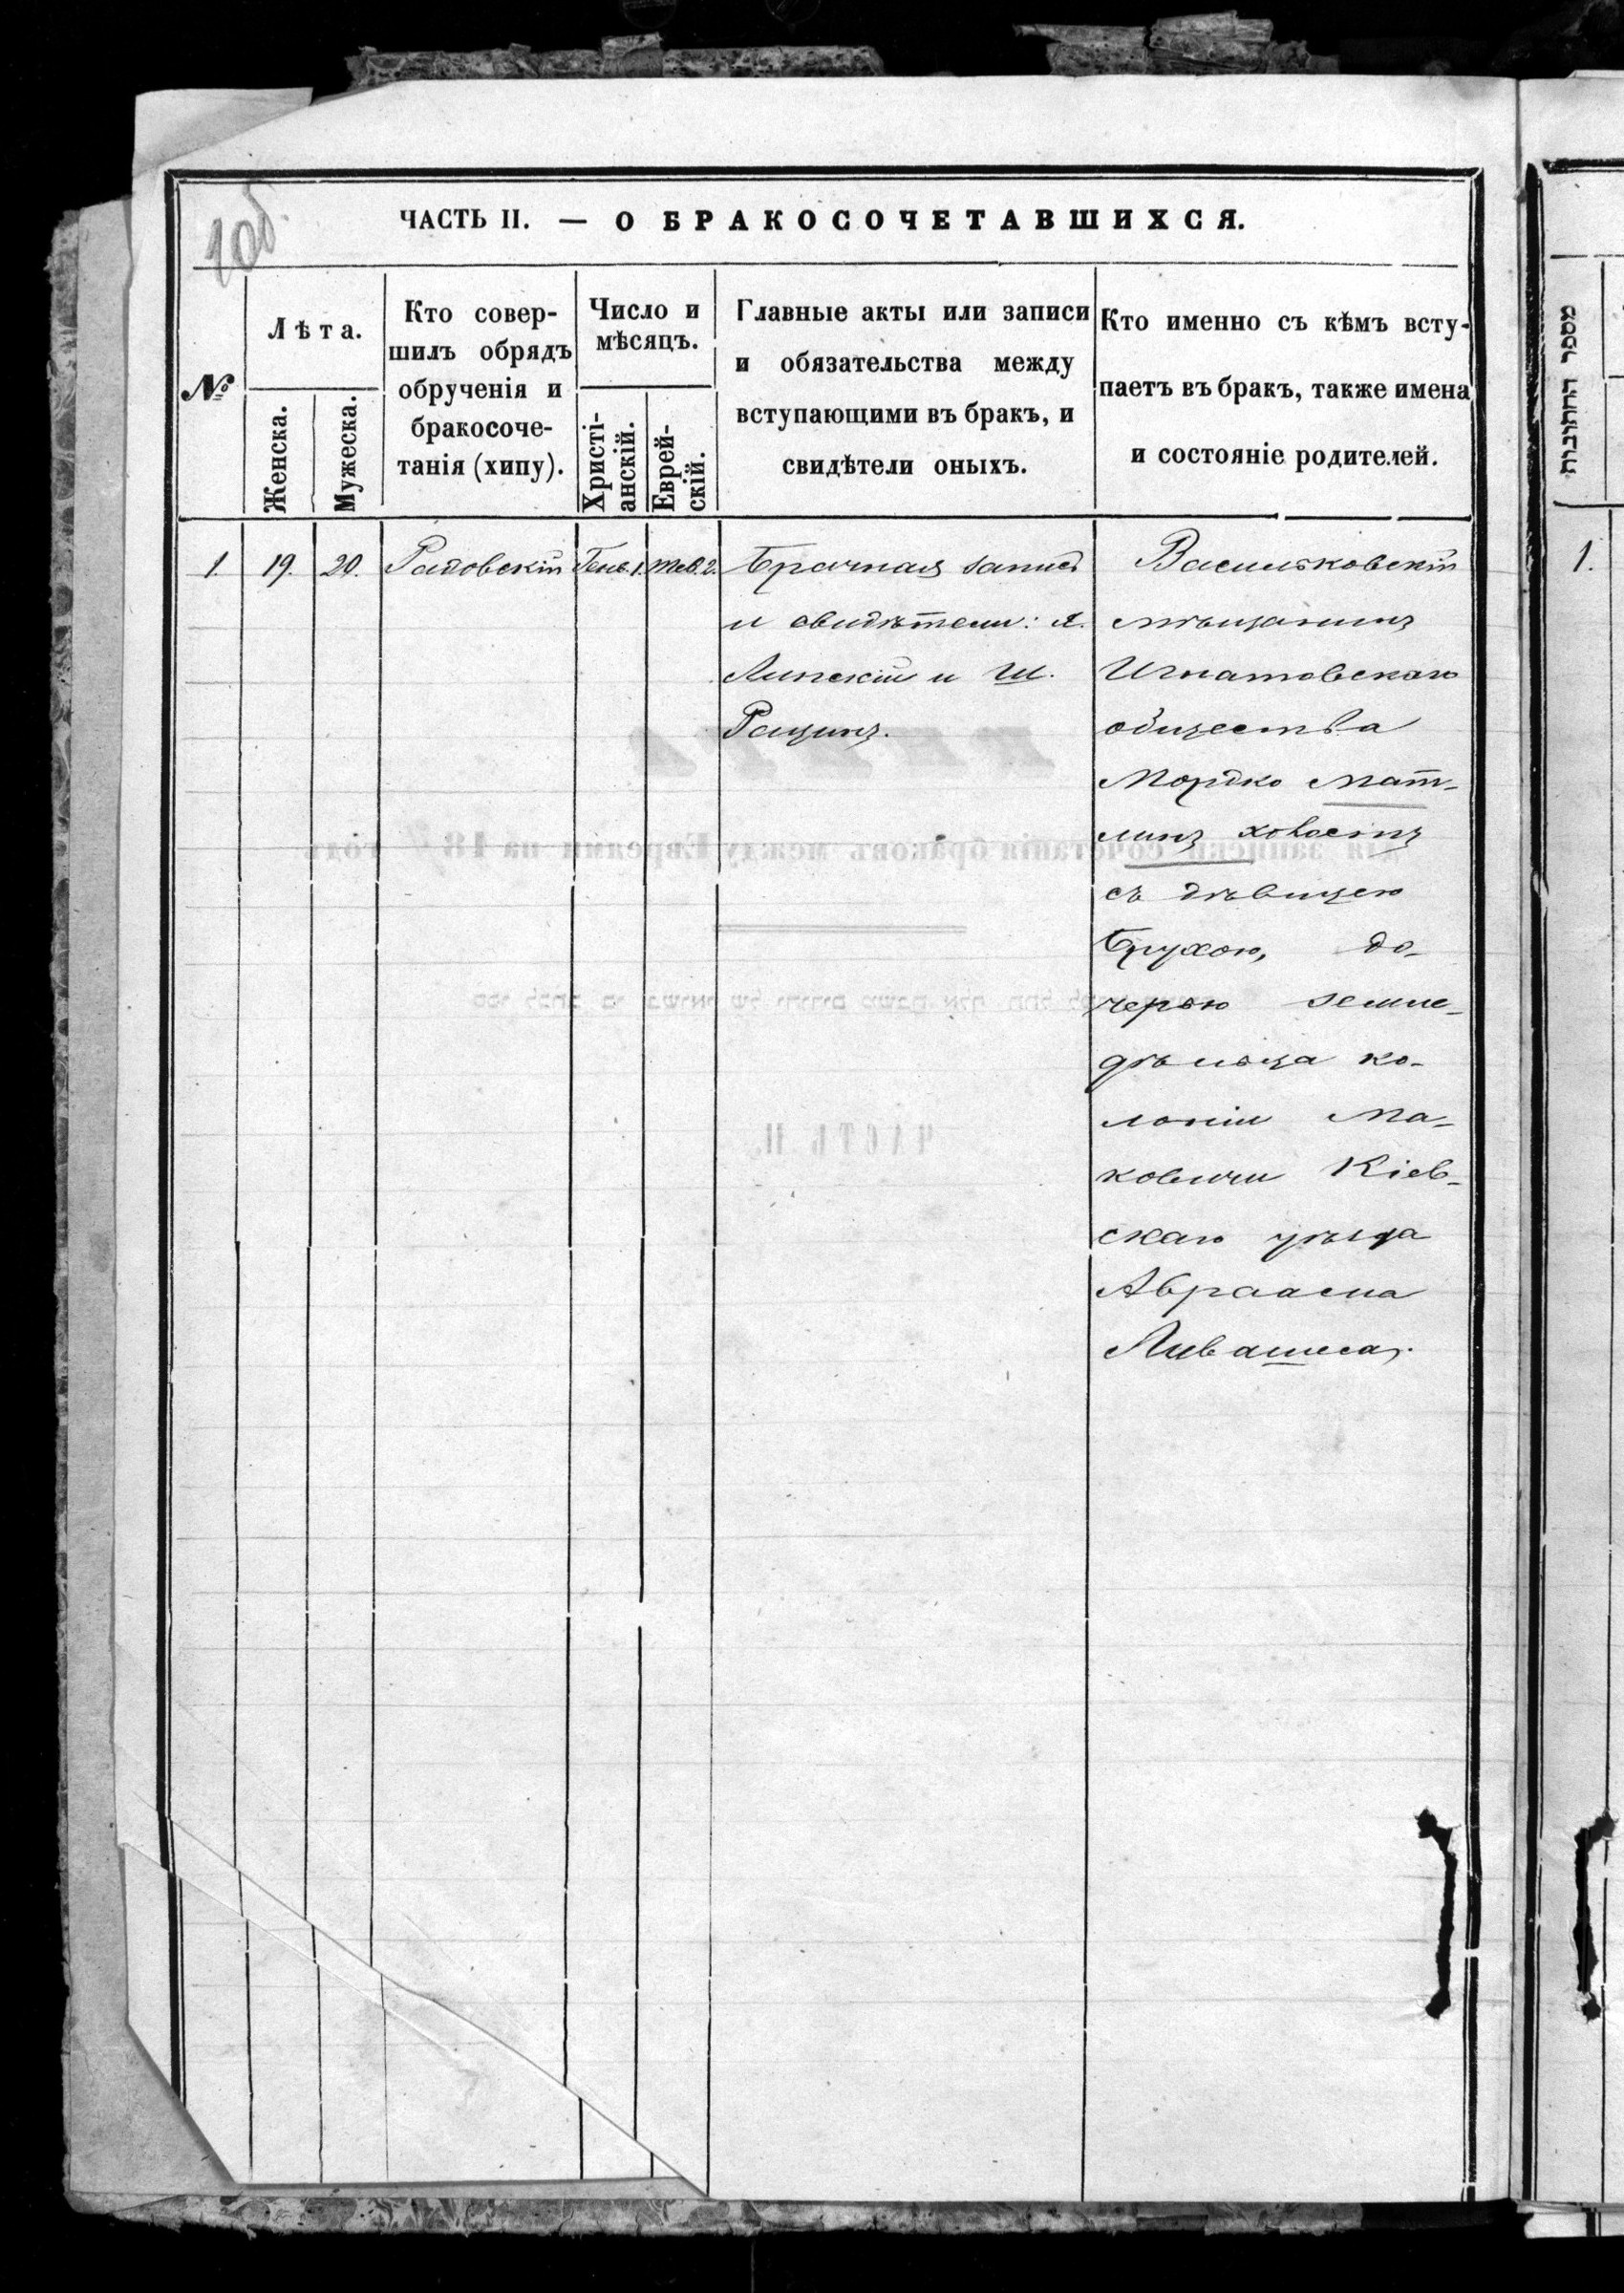 10об.
ЧАСТЬ II. — О БРАКОСОЧЕТАВШИХСЯ.
№
Лѣта.
Женска.
Мужеска.
Кто совер-
шилъ обрядъ
обрученія и
бракосоче-
танія (хипу).
Число и
мѣсяцъ.
Христі-
анскій.
Еврей-
скій.
Главные акты или записи
и обязательства между
вступающими въ бракъ, и
свидѣтели оныхъ.
Кто именно съ кѣмъ всту-
паетъ въ бракъ, также имена
и состояніе родителей.
1. 19. 20. Радовскій Генв. 1. Тев. 2.
Брачная запись
и свидѣтели: Я.
Липскій и Ш.
Ращинъ.
Васильковскій
мѣщанинъ
Игнатовскаго
общества
Мордко Мат-
линъ Ховестъ
съ дѣвицею
Брухою, до-
черью земле-
дѣльца ко-
лоніи Ма-
ковичи Кіев-
скаго уѣзда
Авраама
Лившица.
מספר החתונות
1.